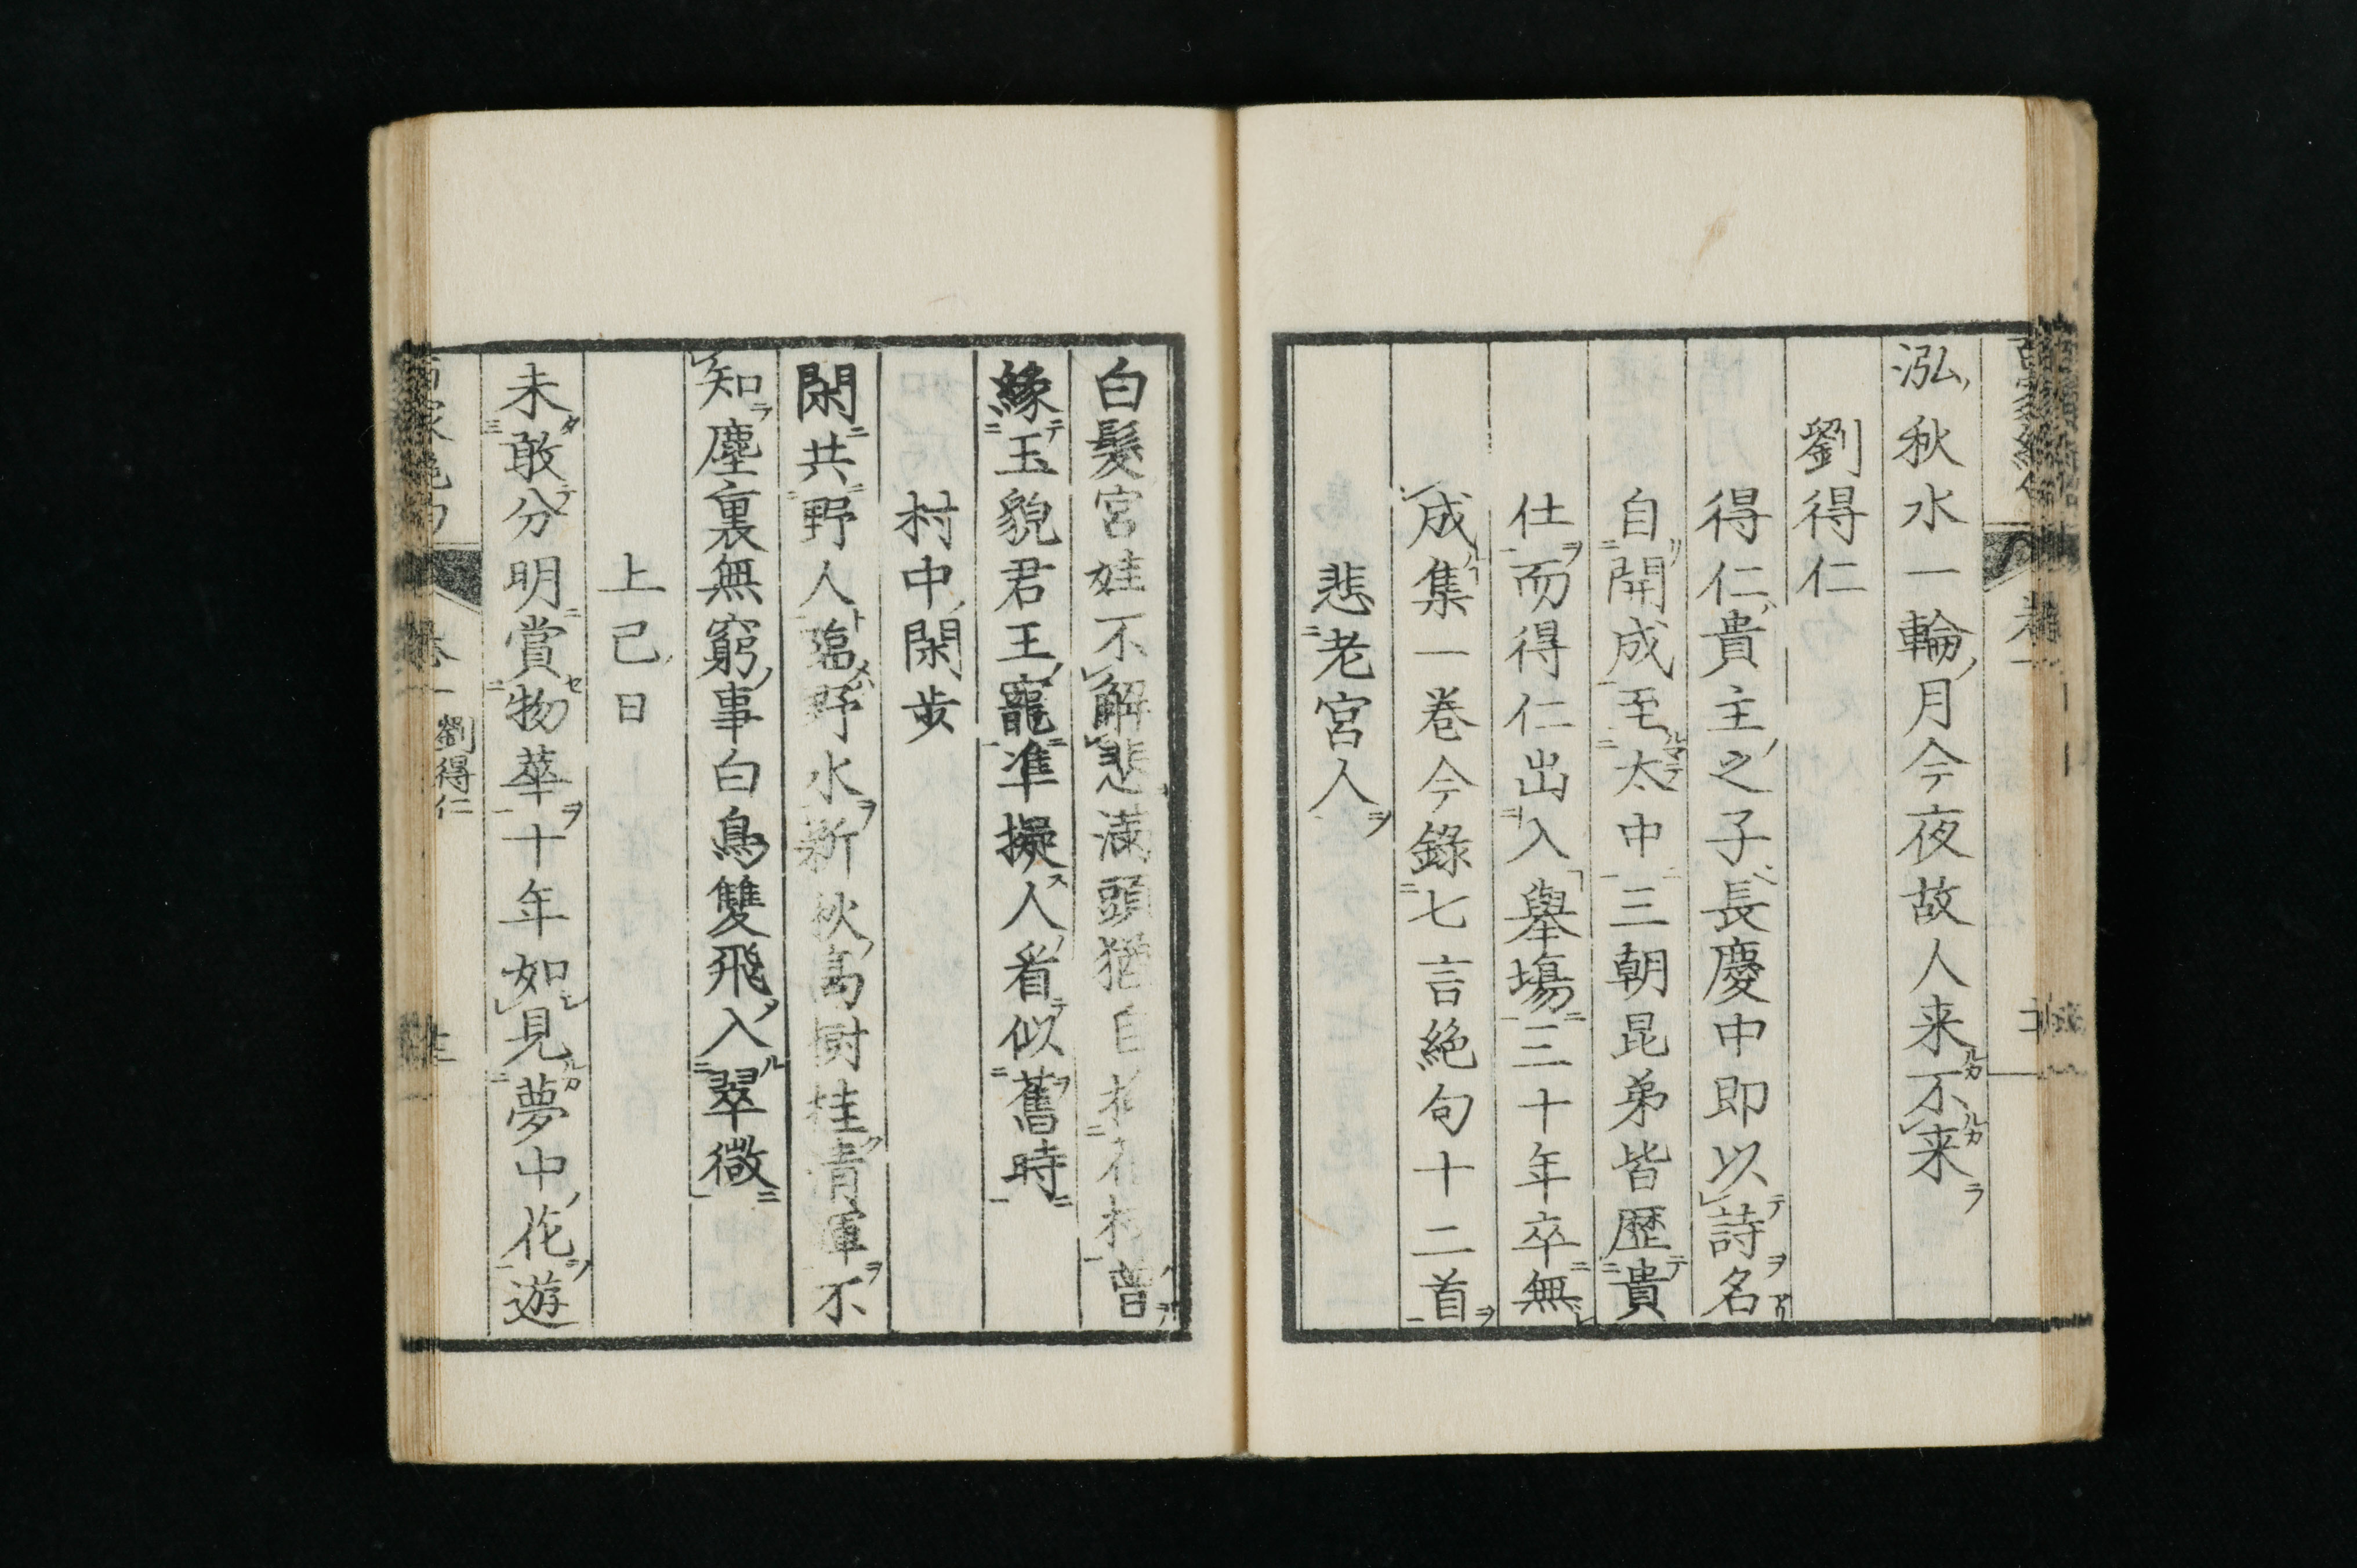 泓秋水一輪月今夜故人来不来
劉得仁
得仁貴主之子長慶中即以詩名
自開成至太中三朝昆弟皆歷貴
仕而得仁出入舉場三十年卒無
成集一巻今錄七言絶句十二首
悲老宮人
白髮宮娃不解悲滿頭猶自揷花枝曾
緣玉貌君王寵準擬人看似舊時
村中閑步
閑共野人臨野水新秋高樹挂清暉不
知塵裏無窮事白鳥雙飛入翠微
上巳日
未敢分明賞物華十年如見夢中花遊
劉得仁